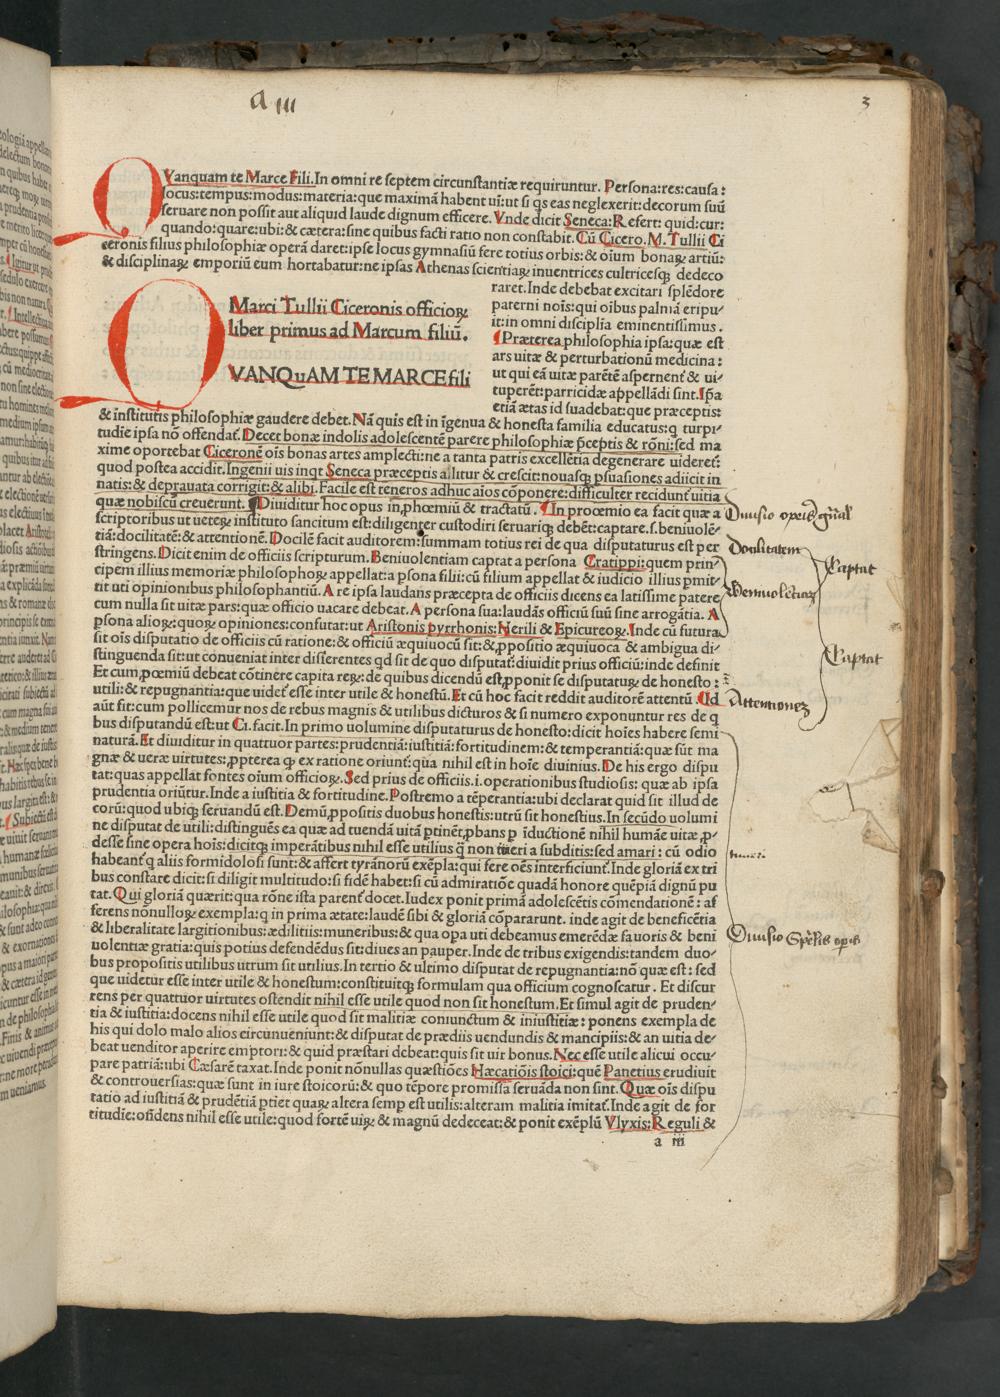 a iii
3
QVanquam te Marce Fili. In omni re septem circunstantiæ requiruntur. Persona:res:causa:
locus:tempus:modus:materia:que maximā habent ui:ut si qs eas neglexerit:decorum suū
seruare non possit aut aliquid laude dignum efficere. Vnde dicit Seneca:Refert: quid:cur:
quando:quare:ubi:& cætera:sine quibus facti ratio non constabit. Cū Cicero. M. Tullii Ci
ceronis filius philosophiæ operā daret:ipse locus gymnasiū fere totius orbis:& oium bonaꝝ artiū:
& disciplinaꝝ emporiū eum hortabatur:ne ipsas Athenas scientiaꝝ inuentrices cultricesqꝫ dedeco
raret. Inde debebat excitari splēdore
paterni nois:qui oibus palmā eripu-
it:in omni disciplia eminentissimus.
Præterea philosophia ipsa:quæ est
ars uitæ & perturbationū medicina:
ut qui eā uitæ parētē aspernent & ui-
tuperēt:parricidæ appellādi sint. Ipa
etiā ætas id suadebat:que præceptis:
Marci Tullii Ciceronis officioꝝ
liber primus ad Marcum filiū.
QVANQuAM TE MARCE fili
& institutis philosophiæ gaudere debet. Nā quis est in īgenua & honesta familia educatus:q turpi-
tudie ipsa nō offendat. Decet bonæ indolis adolescentē parere philosophiæ p̄ceptis & rōni:sed ma
xime oportebat Ciceronē ois bonas artes amplecti:ne a tanta patris excellētia degenerare uideret:
quod postea accidit. Ingenii uis inqt Seneca præceptis alitur & crescit:nouasqꝫ psuasiones adiicit in
natis:& deprauata corrigit:& alibi. Facile est teneros adhuc aios cōponere:difficulter recidunt uitia
quæ nobiscū creuerunt. Diuiditur hoc opus in ꝓhœmiū & tractatū. In prooemio ea facit quæ a
scriptoribus ut ueteꝝ instituto sancitum est:diligenter custodiri seruariqꝫ debēt:captare.s.beniuolē-
tiā:docilitatē:& attentionē. Docilē facit auditorem:summam totius rei de qua disputaturus est per
stringens. Dicit enim de officiis scripturum. Beniuolentiam captat a persona Cratippi:quem prin
cipem illius memoriæ philosophoꝝ appellat:a psona filii:cū filium appellat & iudicio illius pmit-
tit uti opinionibus philosophantiū. A re ipsa laudans præcepta de officiis dicens ea latissime patere
cum nulla sit uitæ pars:quæ officio uacare debeat. A persona sua:laudās officiū suū sine arrogātia. A
psona alioꝝ:quoꝝ opiniones:confutat:ut Aristonis pyrrhonis:Nerili & Epicureoꝝ. Inde cū futura
sit ois disputatio de officiis cū ratione:& officiū æquiuocū sit:& ꝓpositio æquiuoca & ambigua di-
stinguenda sit:ut conueniat inter disserentes qd sit de quo disputat:diuidit prius officiū:inde definit
Et cum ꝓœmiū debeat cōtinere capita reꝝ:de quibus dicendū est ꝓponit se disputatuꝝ de honesto:
utili:& repugnantia:que uidet esse inter utile & honestū. Et cū hoc facit reddit auditorē attentū. Id
aūt fit:cum pollicemur nos de rebus magnis & utilibus dicturos & si numero exponuntur res de q
bus disputandū est:ut Ci.facit. In primo uolumine disputaturus de honesto:dicit hoies habere semi
naturā. Et diuiditur in quattuor partes:prudentiā:iustitiā:fortitudinem:& temperantiā:quæ sūt ma
gnæ & ueræ uirtutes:ꝓpterea ꝙ ex ratione oriunt:qua nihil est in hoie diuinius. De his ergo dispu
tat:quas appellat fontes oium officioꝝ. Sed prius de officiis.i.operationibus studiosis: quæ ab ipsa
prudentia oriūtur. Inde a iustitia & fortitudine. Postremo a tēperantia:ubi declarat quid sit illud de
corū:quod ubiqꝫ seruandū est. Demū ꝓpositis duobus honestis:utrū sit honestius. In secūdo uolumi
ne disputat de utili:distinguēs ea quæ ad tuendā uitā ptinēt:pbans p īductionē nihil humāe uitæ ꝓ-
desse sine opera hois:dicitqꝫ imperātibus nihil esse utilius q̄ non tueri a subditis:sed amari: cū odio
habeant q aliis formidolosi sunt:& affert tyrānorū exēpla:qui fere oēs interficiunt. Inde gloriā ex tri
bus constare dicit:si diligit multitudo:si fidē habet:si cū admiratiōe quadā honore quēpiā dignū pu
tat. Qui gloriā quærit:qua rōne ista parent docet. Iudex ponit primā adolescētis cōmendationē: af
ferens nōnulloꝝ exempla:q in prima ætate:laudē sibi & gloriā cōpararunt. inde agit de beneficētia
& liberalitate largitionibus:ædilitiis:muneribus:& qua opa uti debeamus emerēdæ fauoris & beni
uolentiæ gratia:quis potius defendēdus sit:diues an pauper. Inde de tribus exigendis:tandem duo-
bus propositis utilibus utrum sit utilius. In tertio & ultimo disputat de repugnantia:nō quæ est: sed
que uidetur esse inter utile & honestum:constituitqꝫ formulam qua officium cognoscatur. Et discur
rens per quattuor uirtutes ostendit nihil esse utile quod non sit honestum. Et simul agit de pruden-
tia & iustitia:docens nihil esse utile quod sit malitiæ coniunctum & iniustitiæ: ponens exempla de
his qui dolo malo alios circunueniunt:& disputat de prædiis uendundis & mancipiis:& an uitia de-
beat uenditor aperire emptori:& quid præstari debeat:quis sit uir bonus. Nec esse utile alicui occu-
pare patriā:ubi Cæsarē taxat. Inde ponit nōnullas quæstiōes Hæcatiōis stoici:quē Panetius erudiuit
& controuersias:quæ sunt in iure stoicorū:& quo tēpore promissa seruāda non sint. Quæ ois dispu
tatio ad iustitiā & prudētiā ptiet quaꝝ altera semp est utilis:alteram malitia imitat. Inde agit de for
titudie:ondens nihil esse utile:quod fortē uiꝝ & magnū dedeceat:& ponit exēplū Vlyxis:Reguli &
a iii
Diuisio operis
Docilitatem
Captat
Beniuolētiam
Captat
Attentionem
tueri
Diuisio